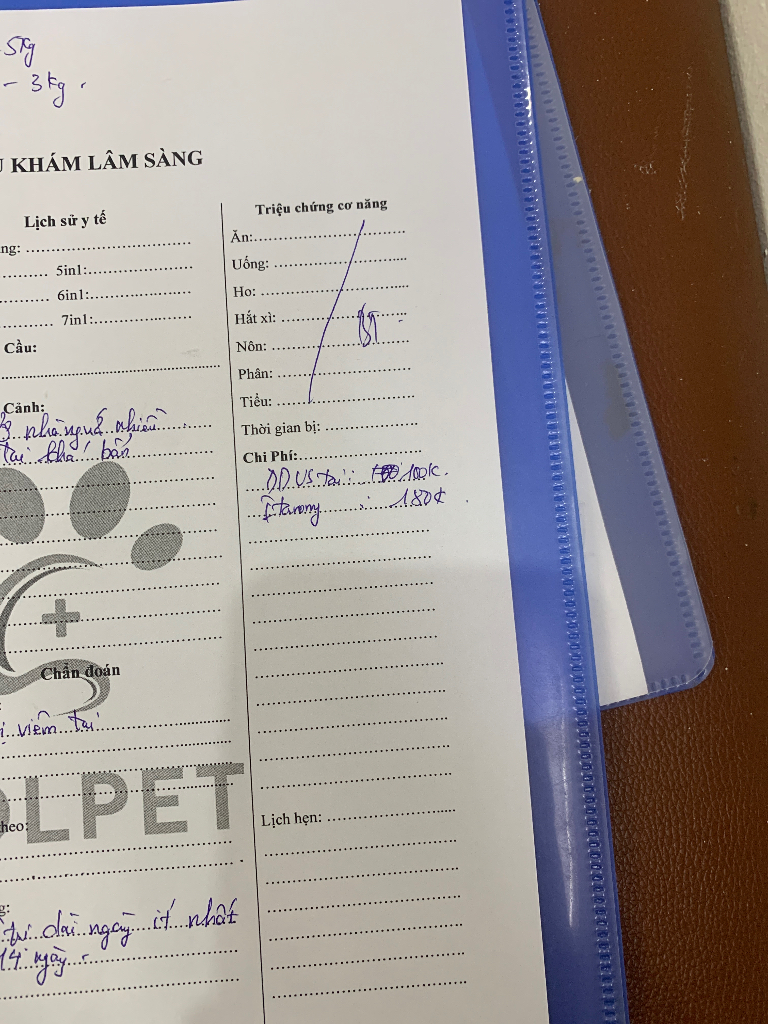 5kg
- 3kg.
U KHÁM LÂM SÀNG
Lịch sử y tế
ng: ..............................
.......... 5in1:......................
.......... 6in1:......................
.......... 7in1:......................
Cầu:
Cảnh:
nhà quá nhiều
tai khá bẩn
Chẩn đoán
viêm tai
OLPET
theo:
g:
trị dài ngày ít nhất
14 ngày.
Triệu chứng cơ năng
Ăn:..............................
Uống: ..............................
Ho: ..............................
Hắt xì: ..............................
BT
Nôn: ..............................
Phân: ..............................
Tiểu: ..............................
Thời gian bị: ..............................
Chi Phí:..............................
DD VS tai: 100k.
: 180k
Lịch hẹn: ..............................